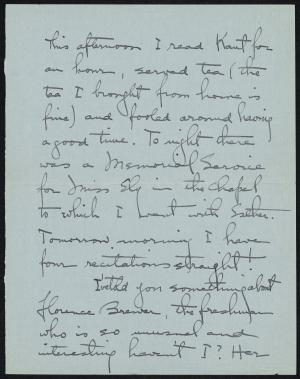 This afternoon I read Kant for
an hour, served tea (the
tea I brought from home is
fine) and fooled around having
a good time. To night there
was a Memorial Service
for Miss Ely in the Chapel
to which I went with Esther.
Tomorrow morning I have
four recitations straight!
I've told you something about
Florence Brewer, the freshman
who is so unusual and
interesting haven't I? Her